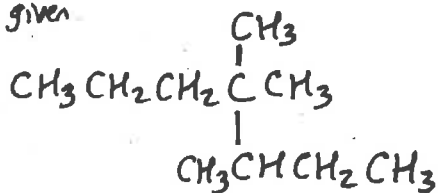 given
CH3
CH3 CH2 CH2 C CH3
CH3CHCH2 CH3